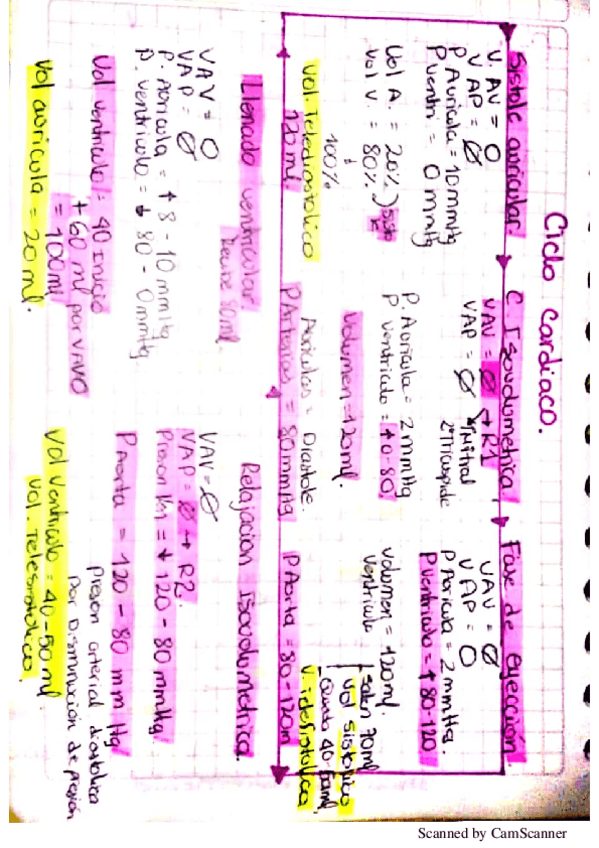 Ciclo cardiaco.
Sistole auricular
V. AV = O
VAP = Ø
P Auricula = 10 mmHg
P ventri = 0 mmHg
Vol A. = 20%
Vol V. = 80%
100%
Vol. Telediastolico
120 ml.
C. Isovolumetrica
VAV = Ø → R1
VAP = Ø
Mitral
Tricuspide
P. Auricula = 2 mmHg
P ventriculo = ↑ 0-80
Volumen = 120 ml.
Auriculas = Diastole.
P Arterias = 80 mmHg
Fase de eyección
VAV = Ø
VAP = O
P Auricula = 2 mmHg.
P ventriculo = ↑ 80-120
volumen = 120 ml.
ventriculo
salen 70 ml
vol sistolico
Queda 40-50 ml
P Aorta = 80-120
Relajacion Isovolumetrica.
VAV = Ø
VAP = Ø → R2.
= ↓ 120 - 80 mmHg.
P Aorta = 120 - 80 mm Hg
presion arterial diastolica
por Disminución de presión
Vol ventriculo = 40-50 ml.
Vol. Telesistolico.
Llenado ventricular.
Recibe 80 ml.
VAV = O
VAP = Ø
P. Auricula = ↑ 8 - 10 mmHg
P. ventriculo = ↓ 80 - 0 mmHg
Vol ventriculo = 40 Inicio
+ 60 ml por VAVO
= 100 ml
Vol auricula = 20 ml.
Scanned by CamScanner